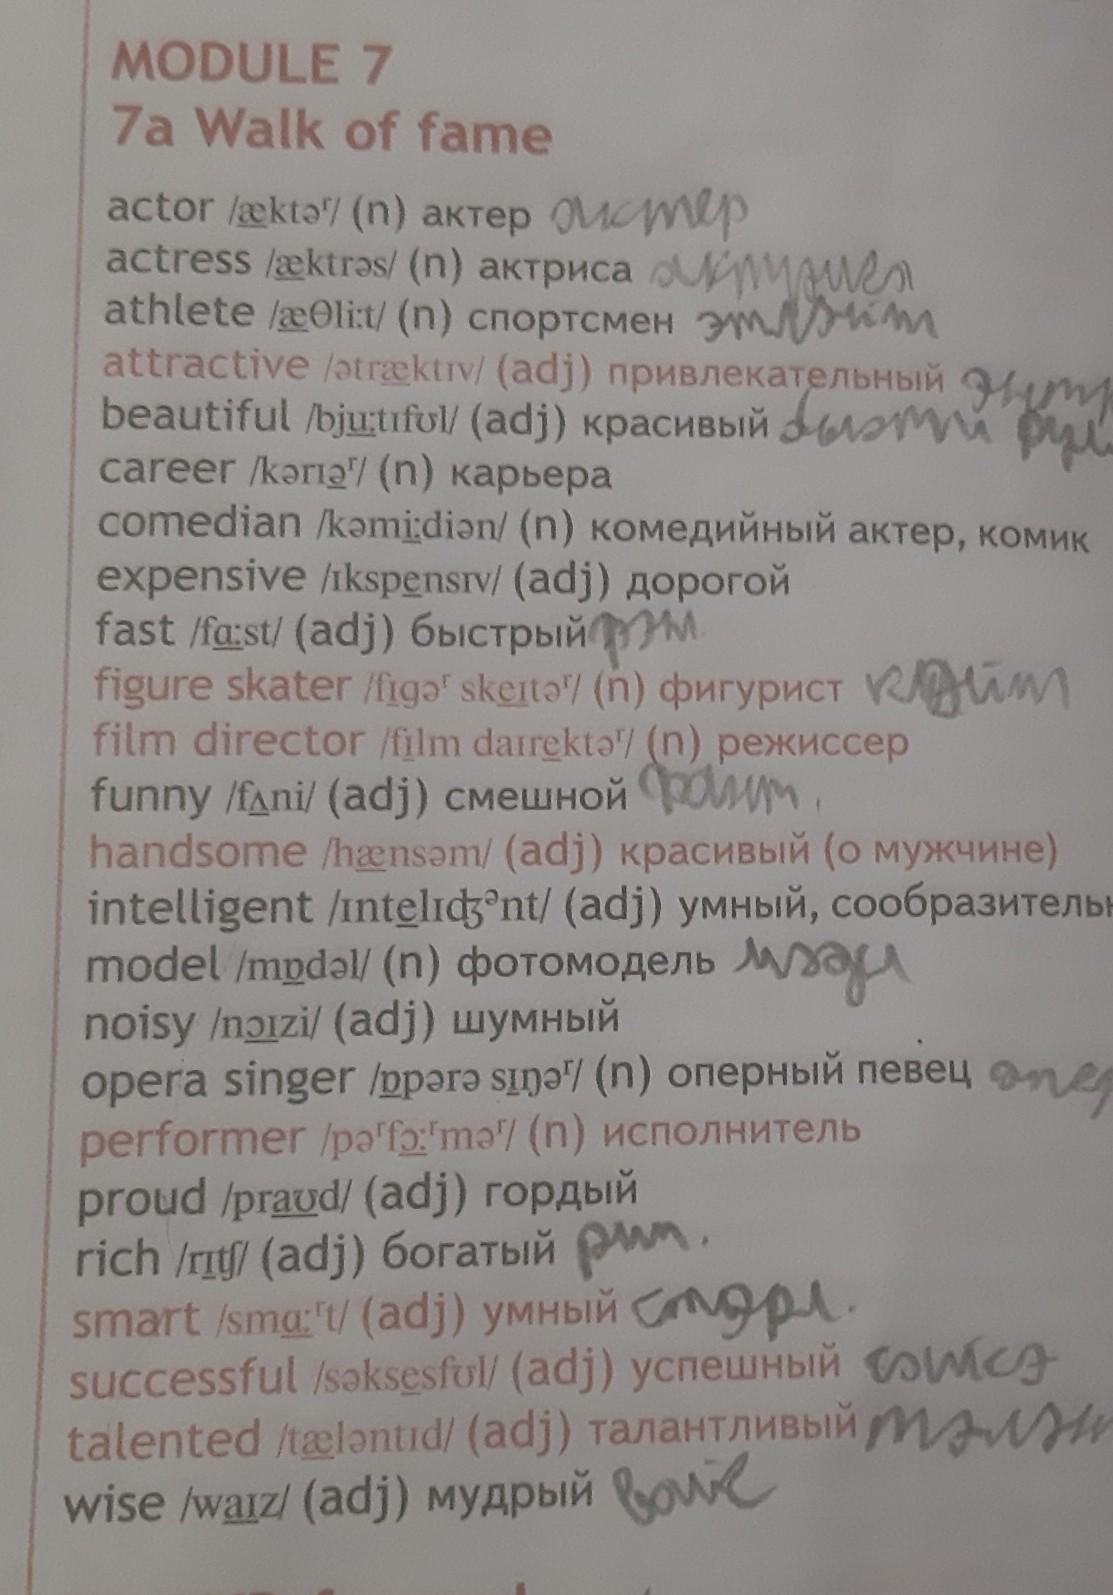 MODULE 7
7a Walk of fame
actor /æktəʳ/ (n) актер актер
actress /æktrəs/ (n) актриса
athlete /æθli:t/ (n) спортсмен
attractive /ətræktɪv/ (adj) привлекательный
beautiful /bju:tɪfʊl/ (adj) красивый
career /kərɪəʳ/ (n) карьера
comedian /kəmi:diən/ (n) комедийный актер, комик
expensive /ɪkspensɪv/ (adj) дорогой
fast /fɑ:st/ (adj) быстрый
figure skater /fɪgəʳ skeɪtəʳ/ (n) фигурист
film director /fɪlm daɪrektəʳ/ (n) режиссер
funny /fʌni/ (adj) смешной
handsome /hænsəm/ (adj) красивый (о мужчине)
intelligent /ɪntelɪdʒᵊnt/ (adj) умный, сообразительн
model /mɒdəl/ (n) фотомодель мэдл
noisy /nɔɪzi/ (adj) шумный
opera singer /ɒpərə sɪŋəʳ/ (n) оперный певец опер
performer /pəʳfɔ:ʳməʳ/ (n) исполнитель
proud /praʊd/ (adj) гордый
rich /rɪtʃ/ (adj) богатый
smart /smɑ:ʳt/ (adj) умный
successful /səksesfʊl/ (adj) успешный
talented /tæləntɪd/ (adj) талантливый тэлэн
wise /waɪz/ (adj) мудрый вайс